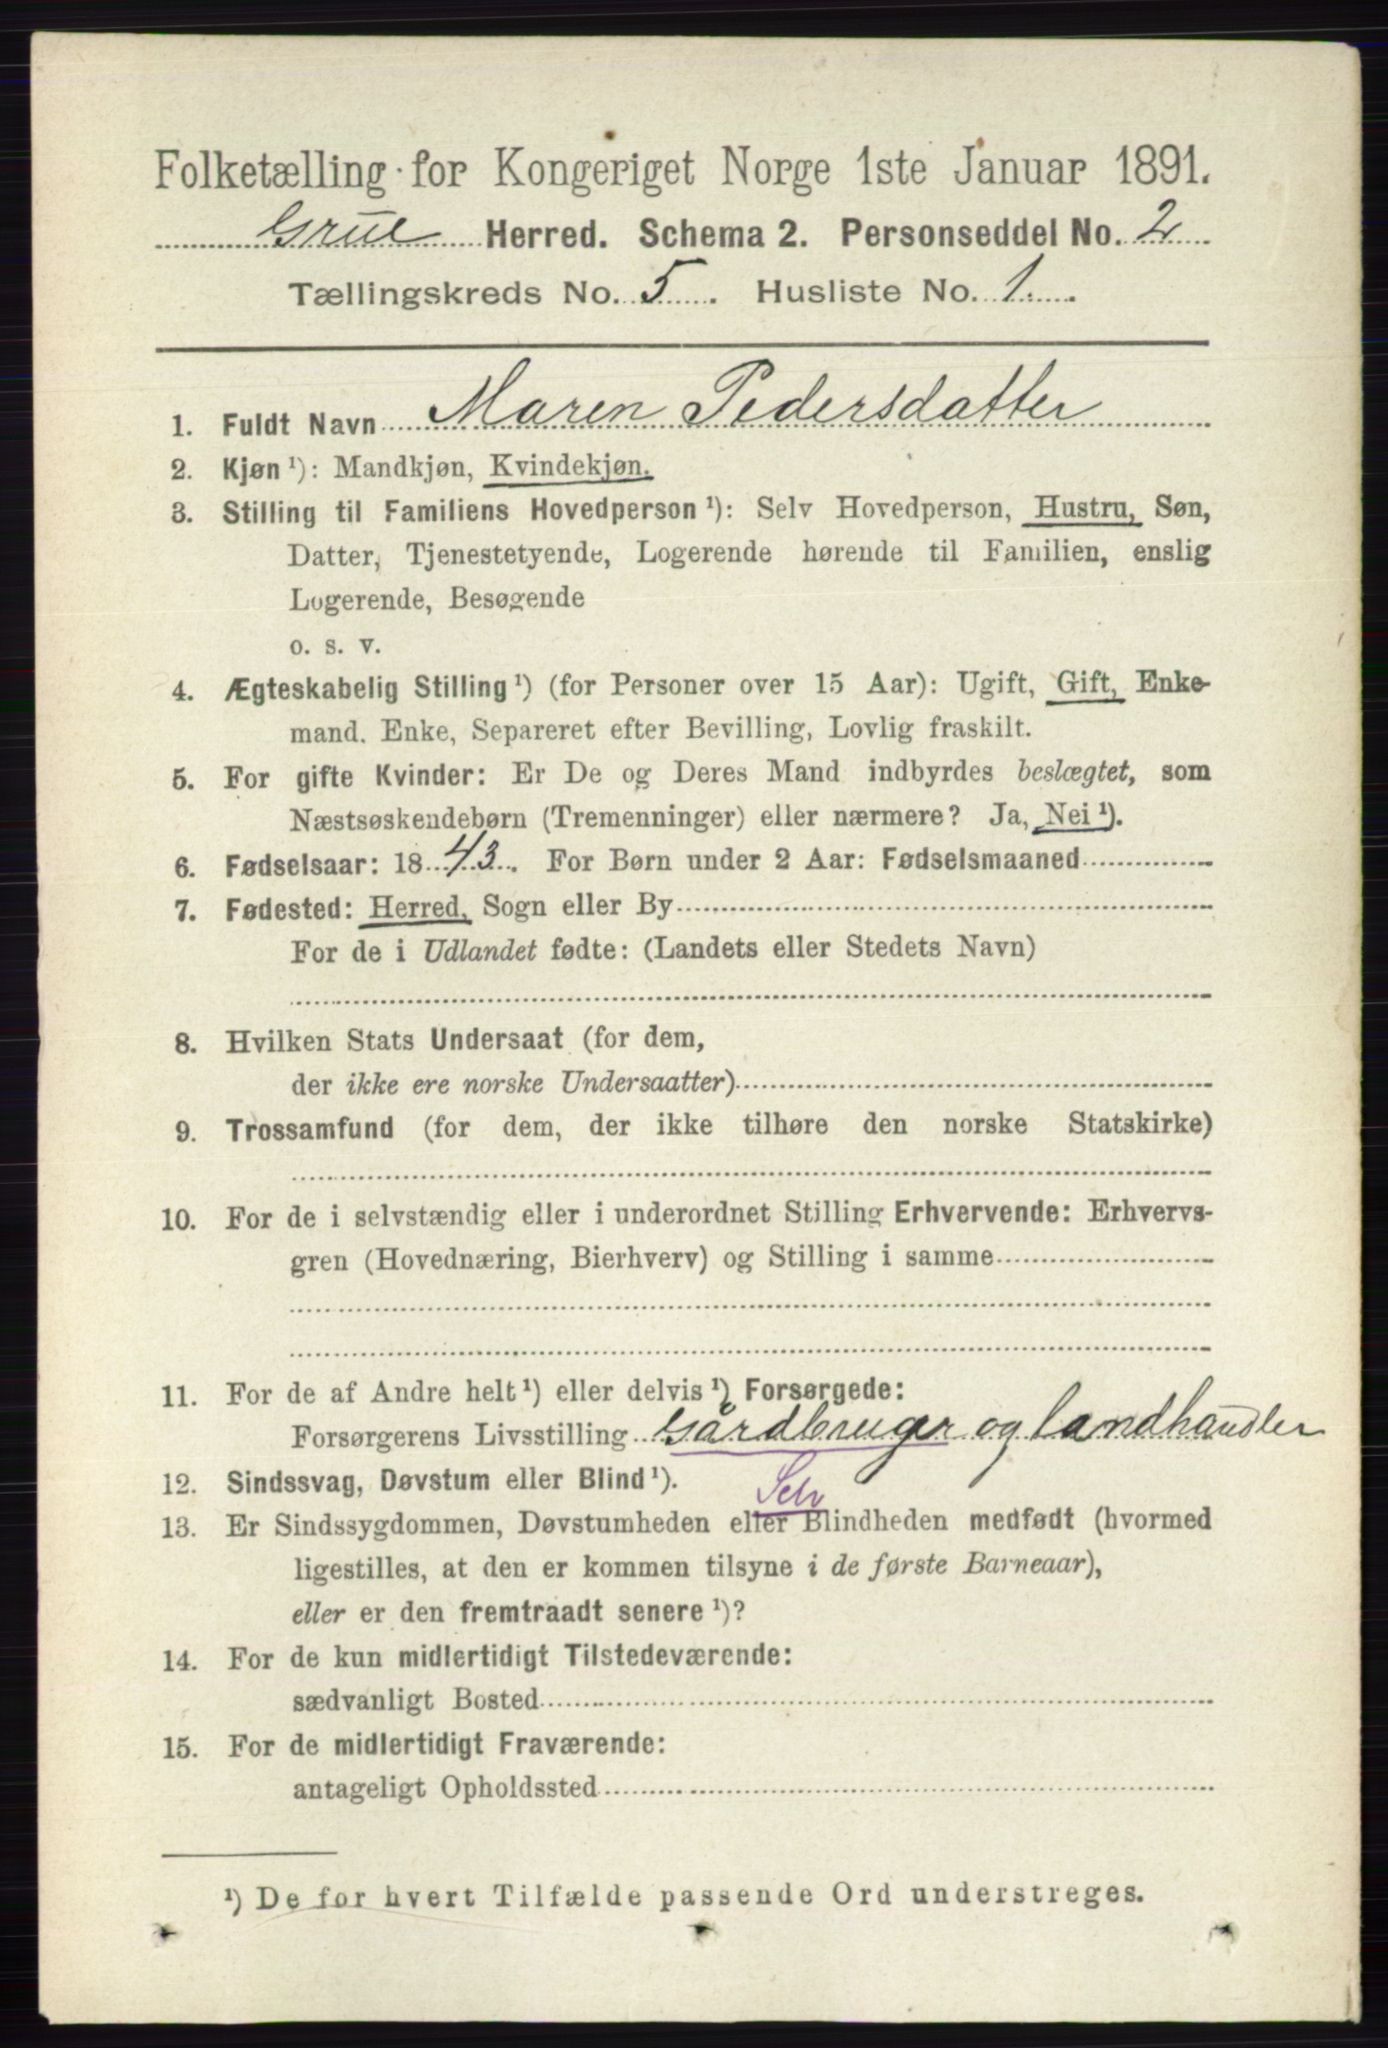 Folketælling for Kongeriget Norge 1ste Januar 1891.
Grue Herred. Schema 2. Personseddel No. 2
Tællingskreds No. 5. Husliste No. 1.
1. Fuldt Navn Maren Pedersdatter
2. Kjøn ¹): Mandkjøn, Kvindekjøn.
3. Stilling til Familiens Hovedperson ¹): Selv Hovedperson, Hustru, Søn,
Datter, Tjenestetyende, Logerende hørende til Familien, enslig
Logerende, Besøgende
o. s. v.
4. Ægteskabelig Stilling ¹) (for Personer over 15 Aar): Ugift, Gift, Enke-
mand. Enke, Separeret efter Bevilling, Lovlig fraskilt.
5. For gifte Kvinder: Er De og Deres Mand indbyrdes beslægtet, som
Næstsøskendebørn (Tremenninger) eller nærmere? Ja, Nei ¹).
6. Fødselsaar: 1843. For Børn under 2 Aar: Fødselsmaaned
7. Fødested: Herred, Sogn eller By
For de i Udlandet fødte: (Landets eller Stedets Navn)
8. Hvilken Stats Undersaat (for dem,
der ikke ere norske Undersaatter)
9. Trossamfund (for dem, der ikke tilhøre den norske Statskirke)
10. For de i selvstændig eller i underordnet Stilling Erhvervende: Erhvervs-
gren (Hovednæring, Bierhverv) og Stilling i samme
11. For de af Andre helt ¹) eller delvis ¹) Forsørgede:
Forsørgerens Livsstilling Gårdbruger og landhandler
12. Sindssvag, Døvstum eller Blind ¹).
Selv
13. Er Sindssygdommen, Døvstumheden eller Blindheden medfødt (hvormed
ligestilles, at den er kommen tilsyne i de første Barneaar),
eller er den fremtraadt senere ¹)?
14. For de kun midlertidigt Tilstedeværende:
sædvanligt Bosted
15. For de midlertidigt Fraværende:
antageligt Opholdssted
¹) De for hvert Tilfælde passende Ord understreges.